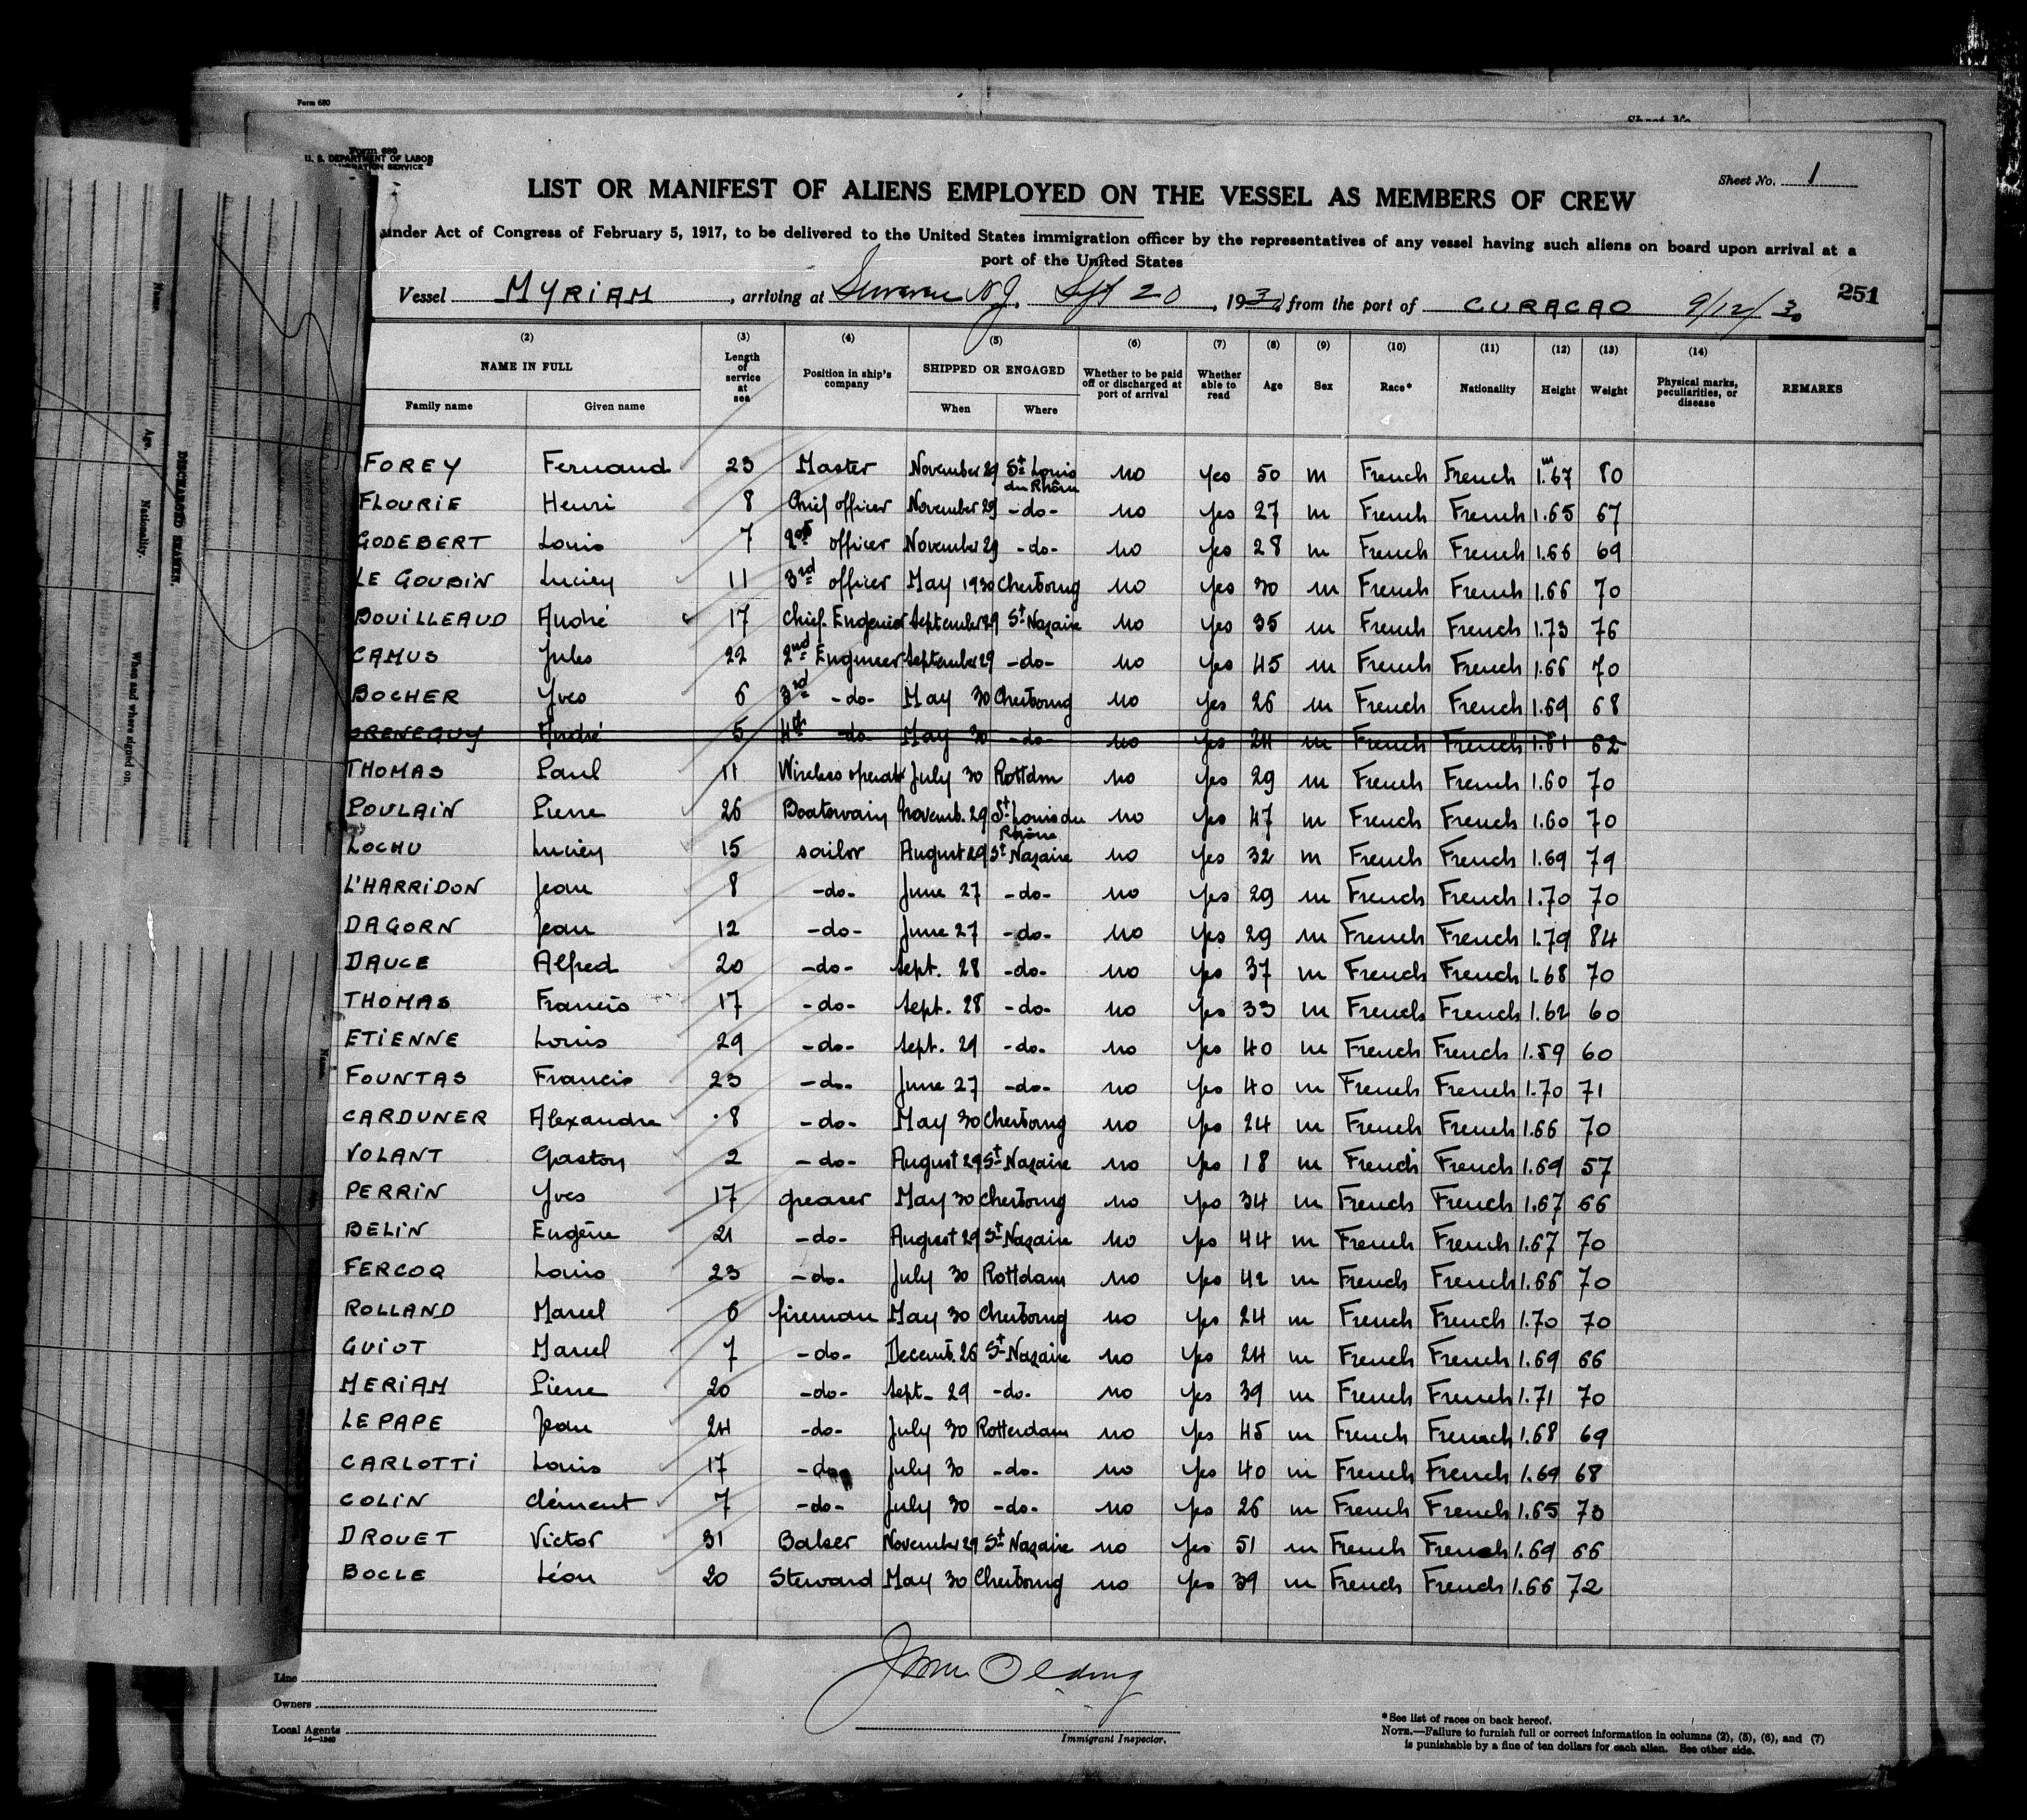 Form 680
Sheet No.
Form 680
U. S. DEPARTMENT OF LABOR
IMMIGRATION SERVICE
Sheet No. 1
LIST OR MANIFEST OF ALIENS EMPLOYED ON THE VESSEL AS MEMBERS OF CREW
under Act of Congress of February 5, 1917, to be delivered to the United States immigration officer by the representatives of any vessel having such aliens on board upon arrival at a
port of the United States
Vessel MYRIAM, arriving at N.J. Sept 20, 1930, from the port of CURACAO 9/12/30 251
(2) (3) (4) (5) (6) (7) (8) (9) (10) (11) (12) (13) (14)
NAME IN FULL Length of service at sea Position in ship's company SHIPPED OR ENGAGED Whether to be paid off or discharged at port of arrival Whether able to read Age Sex Race* Nationality Height Weight Physical marks, peculiarities, or disease REMARKS
Family name Given name When Where
FOREY Fernand 23 Master November 29 St Louis du Rhône no yes 50 m French French 1.m67 80
FLOURIE Henri 8 Chief officer November 29 -do- no yes 27 m French French 1.65 67
GODEBERT Louis 7 2nd officer November 29 -do- no yes 28 m French French 1.66 69
LE GOUDIN Lucien 11 3rd officer May 1930 Cherbourg no yes 30 m French French 1.66 70
BOUILLEAUD André 17 Chief Engenior September 29 St Nazaire no yes 35 m French French 1.73 76
CAMUS Jules 22 2nd Engineer September 29 -do- no yes 45 m French French 1.66 70
BOCHER Yves 6 3rd -do- May 30 Cherbourg no yes 26 m French French 1.69 68
André 5 4th -do- May 30 -do- no yes 24 m French French 1.61 62
THOMAS Paul 11 Wireless operat July 30 Rottdm no yes 29 m French French 1.60 70
POULAIN Pierre 26 Boatswain Novemb. 29 St Louis du Rhône no yes 47 m French French 1.60 70
LOCHU Lucien 15 sailor August 29 St Nazaire no yes 32 m French French 1.69 79
L'HARRIDON Jean 8 -do- June 27 -do- no yes 29 m French French 1.70 70
DAGORN Jean 12 -do- June 27 -do- no yes 29 m French French 1.79 84
DAUCE Alfred 20 -do- Sept. 28 -do- no yes 37 m French French 1.68 70
THOMAS Francis 17 -do- Sept. 28 -do- no yes 33 m French French 1.62 60
ETIENNE Louis 29 -do- Sept. 29 -do- no yes 40 m French French 1.59 60
FOUNTAS Francis 23 -do- June 27 -do- no yes 40 m French French 1.70 71
CARDUNER Alexandre 8 -do- May 30 Cherbourg no yes 24 m French French 1.66 70
VOLANT Gaston 2 -do- August 29 St Nazaire no yes 18 m French French 1.69 57
PERRIN Yves 17 greaser May 30 Cherbourg no yes 34 m French French 1.67 66
BELIN Eugène 21 -do- August 29 St Nazaire no yes 44 m French French 1.67 70
FERCOQ Louis 23 -do- July 30 Rottdam no yes 42 m French French 1.66 70
ROLLAND Marcel 6 fireman May 30 Cherbourg no yes 24 m French French 1.70 70
GUIOT Marcel 7 -do- Decemb. 26 St Nazaire no yes 24 m French French 1.69 66
MERIAM Pierre 20 -do- Sept- 29 -do- no yes 39 m French French 1.71 70
LE PAPE Jean 24 -do- July 30 Rotterdam no yes 45 m French French 1.68 69
CARLOTTI Louis 17 -do- July 30 -do- no yes 40 m French French 1.69 68
COLIN Clément 7 -do- July 30 -do- no yes 26 m French French 1.65 73
DROUET Victor 31 Baker November 29 St Nazaire no yes 51 m French French 1.69 66
BOCLE Léon 20 Steward May 30 Cherbourg no yes 39 m French French 1.66 72
Line
Owners
Local Agents
14—1240
Immigrant Inspector.
*See list of races on back hereof.
NOTE.—Failure to furnish full or correct information in columns (2), (5), (6), and (7)
is punishable by a fine of ten dollars for each alien. See other side.